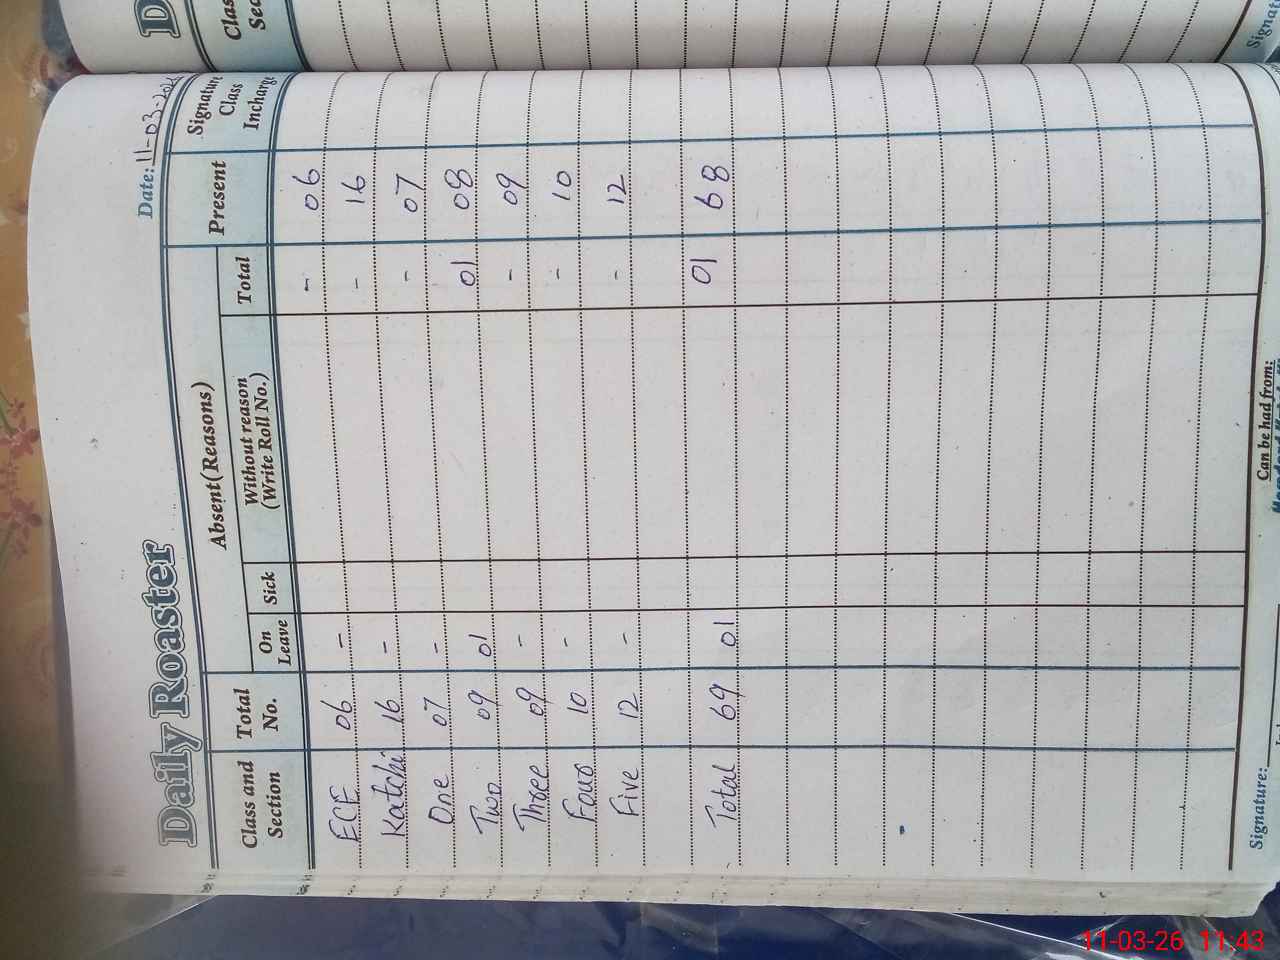 Daily Roaster
Date: 11-03-2026
Class and Section Total No. Absent(Reasons) Present Signature Class Incharge
On Leave Sick Without reason (Write Roll No.) Total
ECE 06 - - 06
Katchi 16 - - 16
One 07 - - 07
Two 09 01 01 08
Three 09 - - 09
Four 10 - - 10
Five 12 - - 12
Total 69 01 01 68
Signature:
Can be had from:
11-03-26 11:43